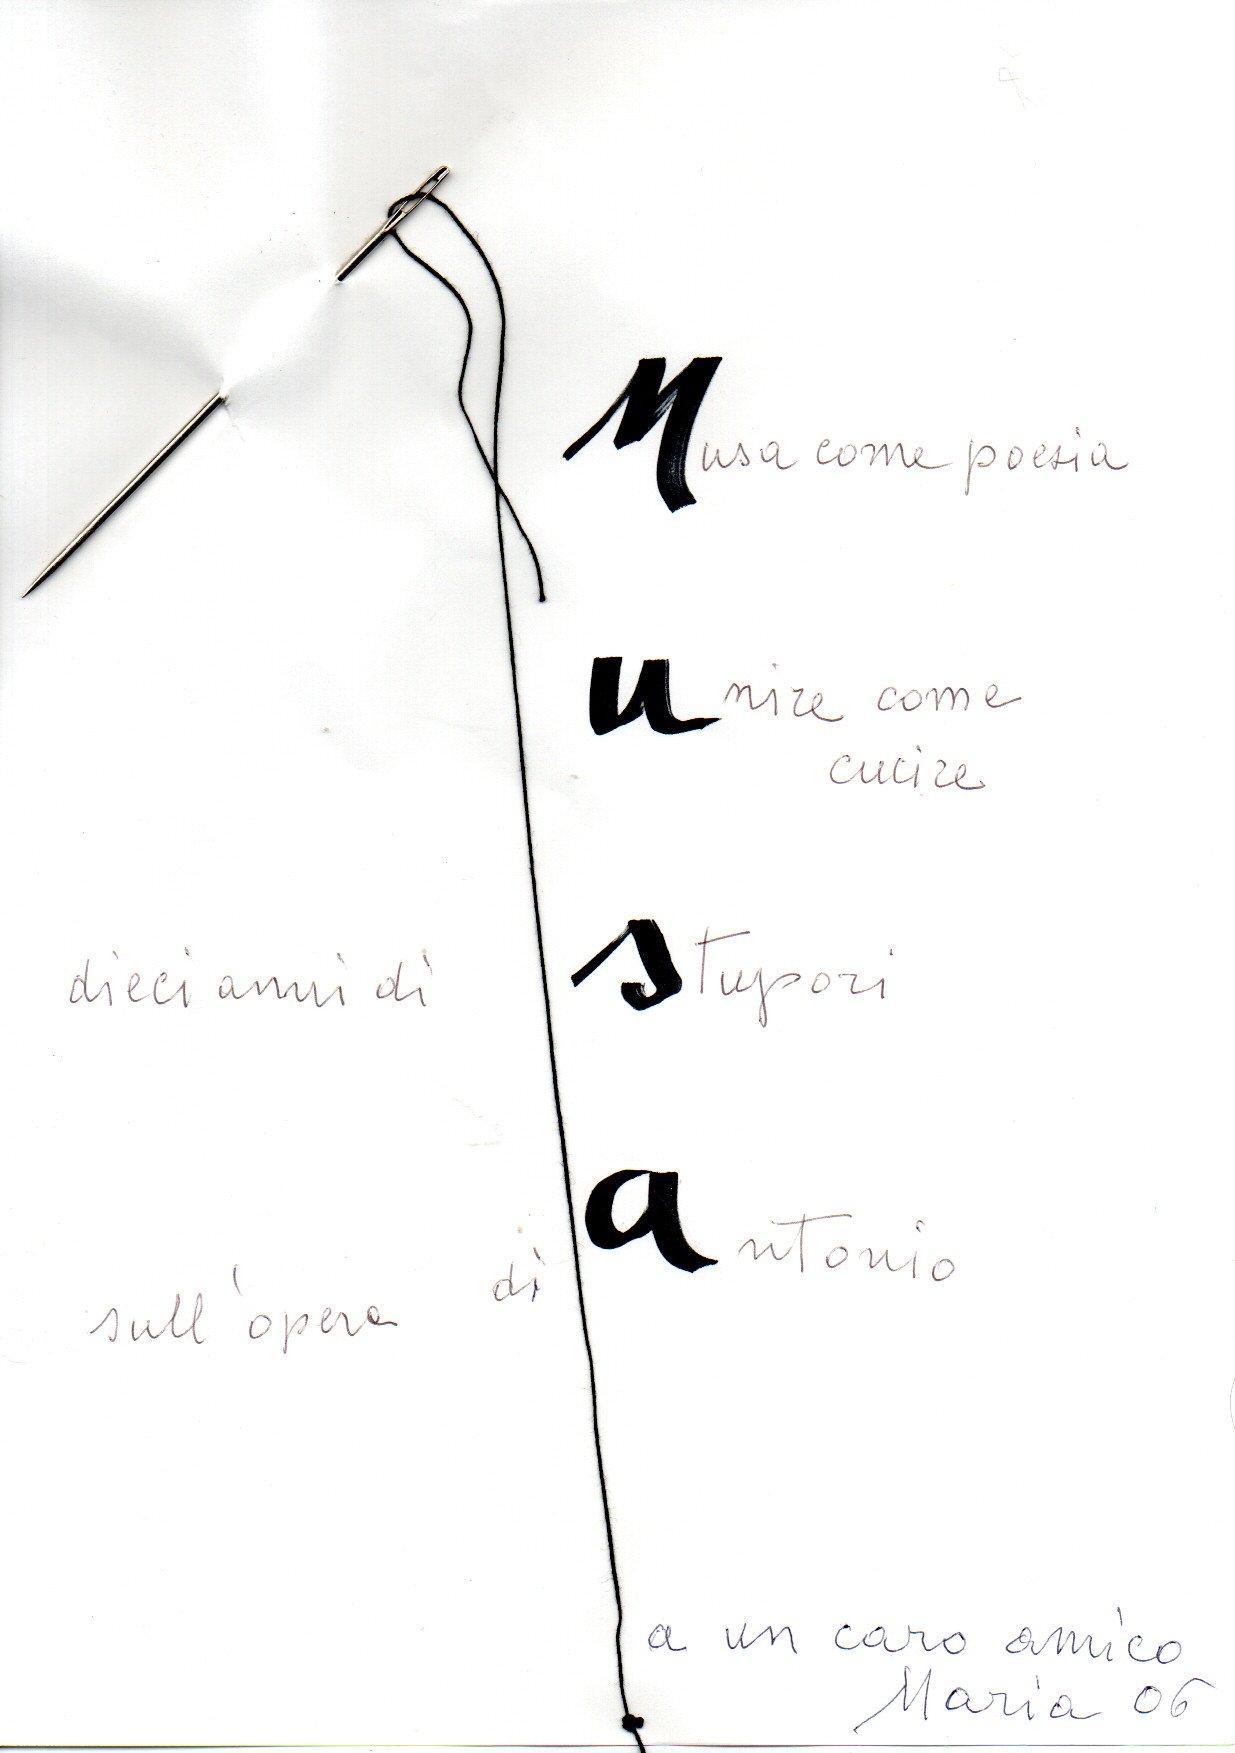 Musa come poesia
unire come
cucire
dieci anni di stupori
sull'opera di antonio
a un caro amico
Maria 06